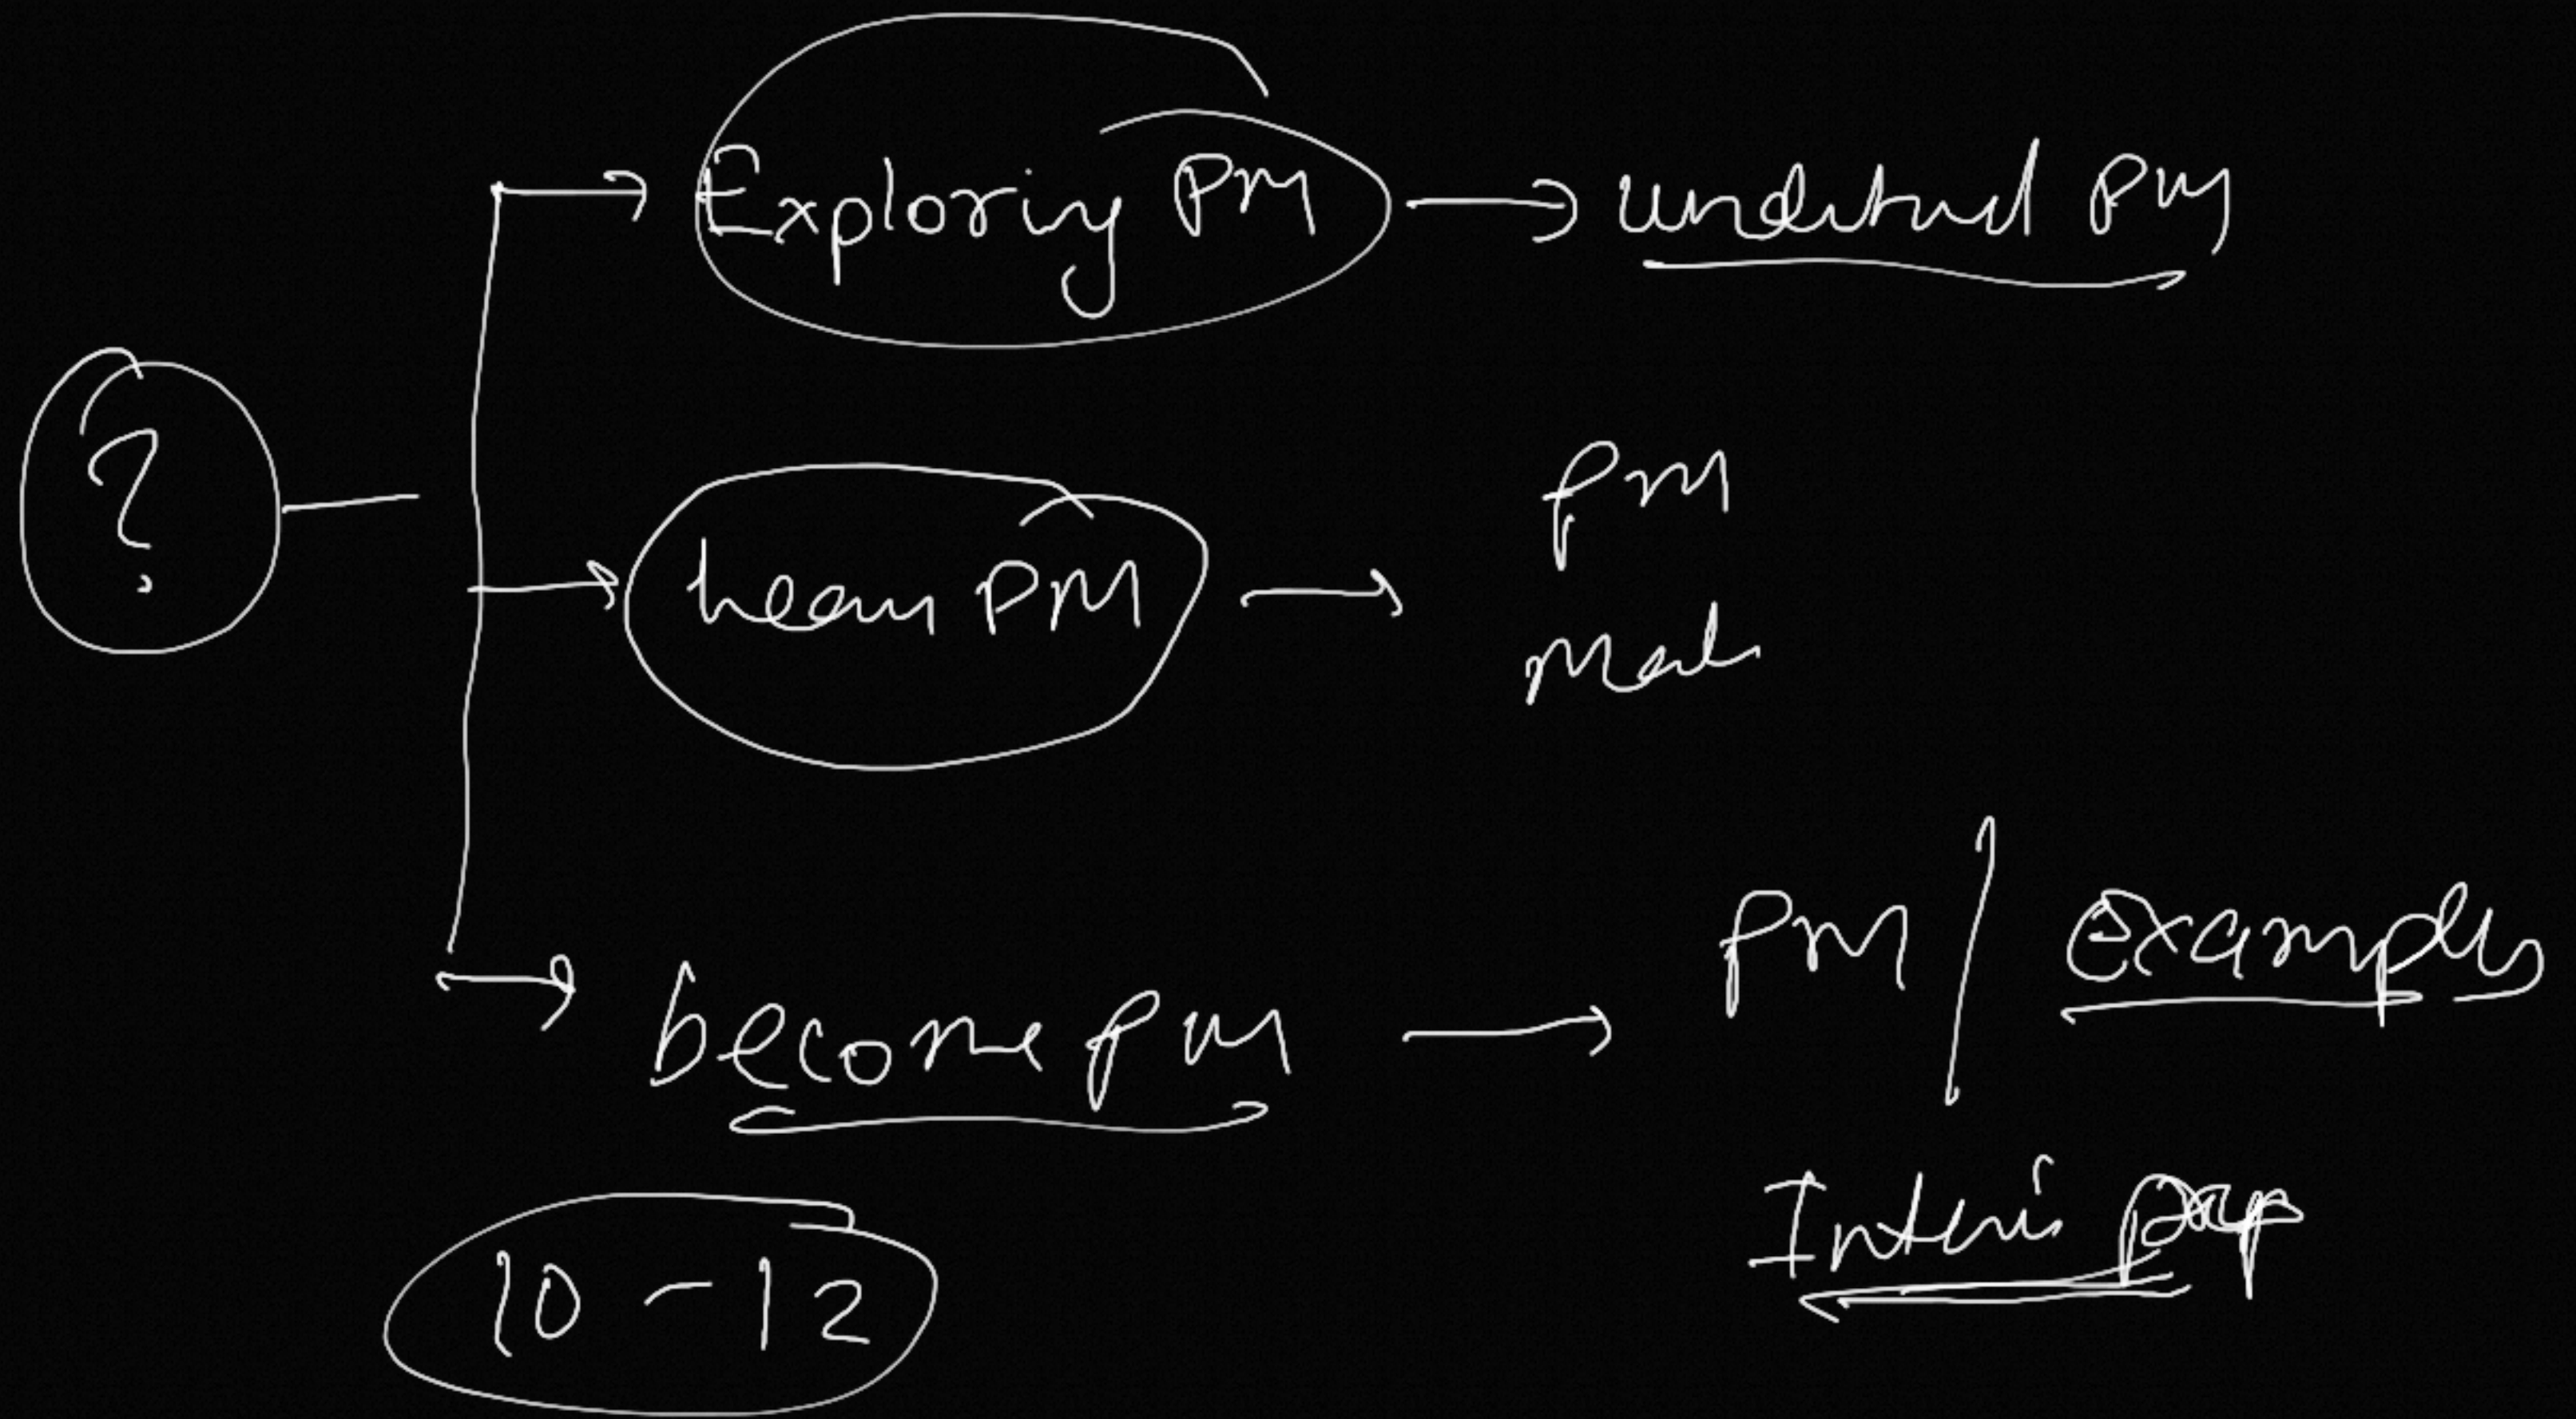 Exploring PM → understand PM
?
Learn PM →
PM
become PM → PM / examples
10 - 12